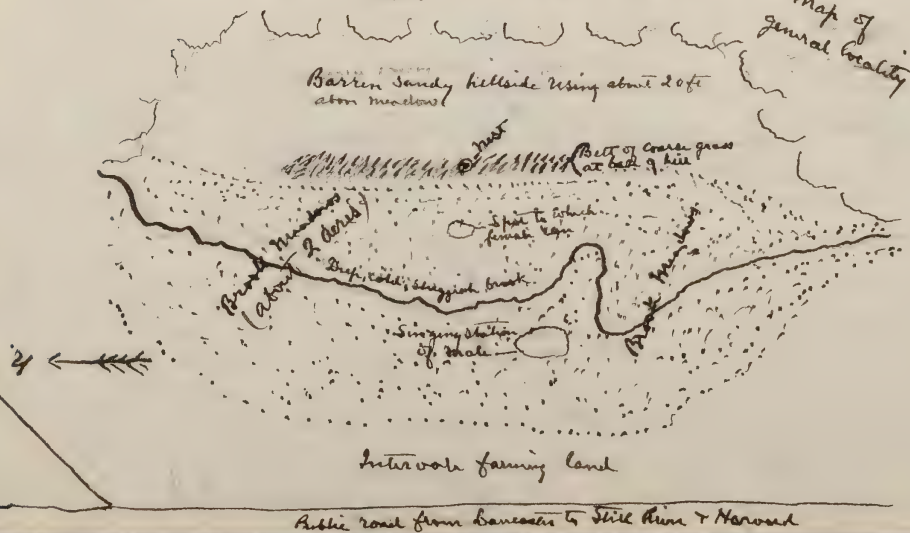 Map of
general locality
Barren sandy hillside rising about 20 ft
above meadow
Nest
Belt of coarse grass
at base of hill
Spot to which
female ran
Brook Meadows
(about 2 acres)
Deep, cold, sluggish brook
Brook Meadows
Singing station
of male
Intervale farming land
Public road from Lancaster to Still River & Harvard